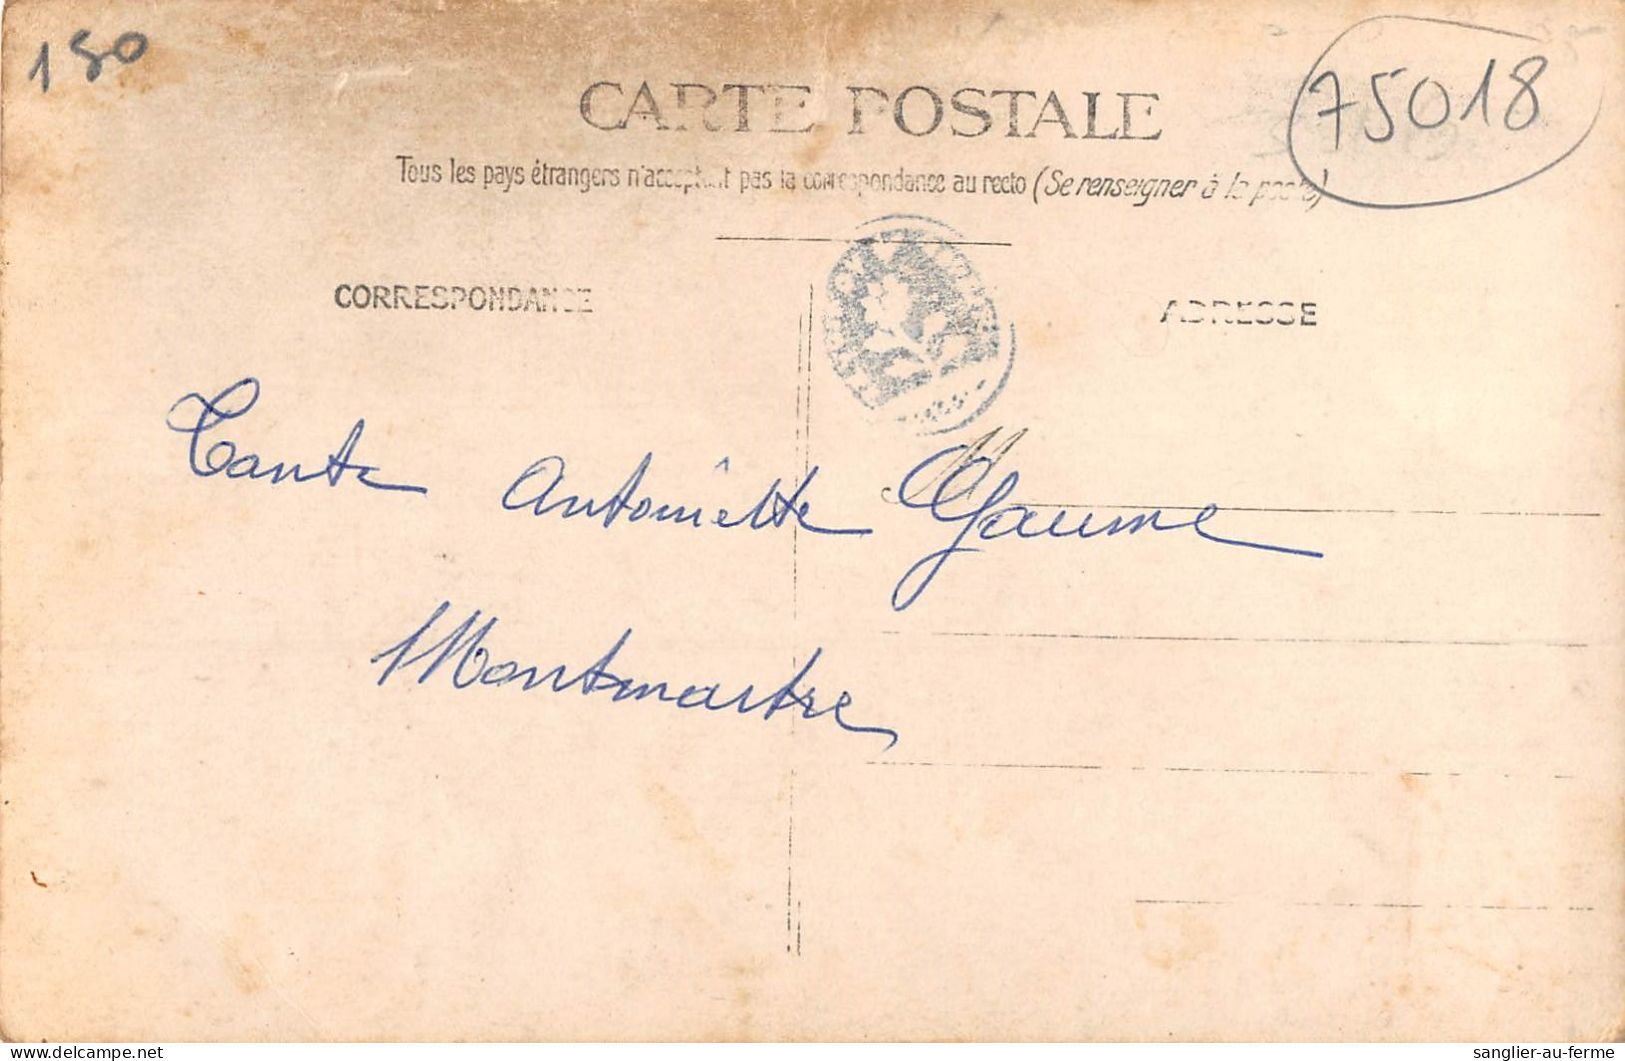 150
CARTE POSTALE
75018
Tous les pays étrangers n'acceptent pas la correspondance au recto (Se renseigner à la poste)
CORRESPONDANCE
ADRESSE
Tante Antoinette Gaume
Montmartre
sanglier-au-ferme